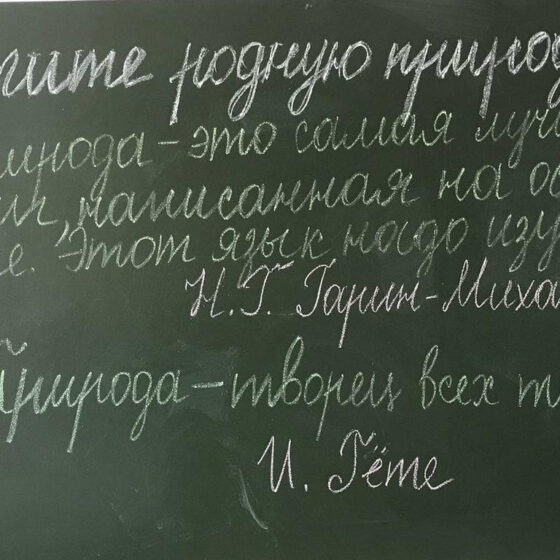 гите родную природ
рирода - это самая луч
ги, написанная на ос
ке. Этот язык надо изу
Н.Г. Гарин-Миха
Природа - творец всех т
И. Гёте